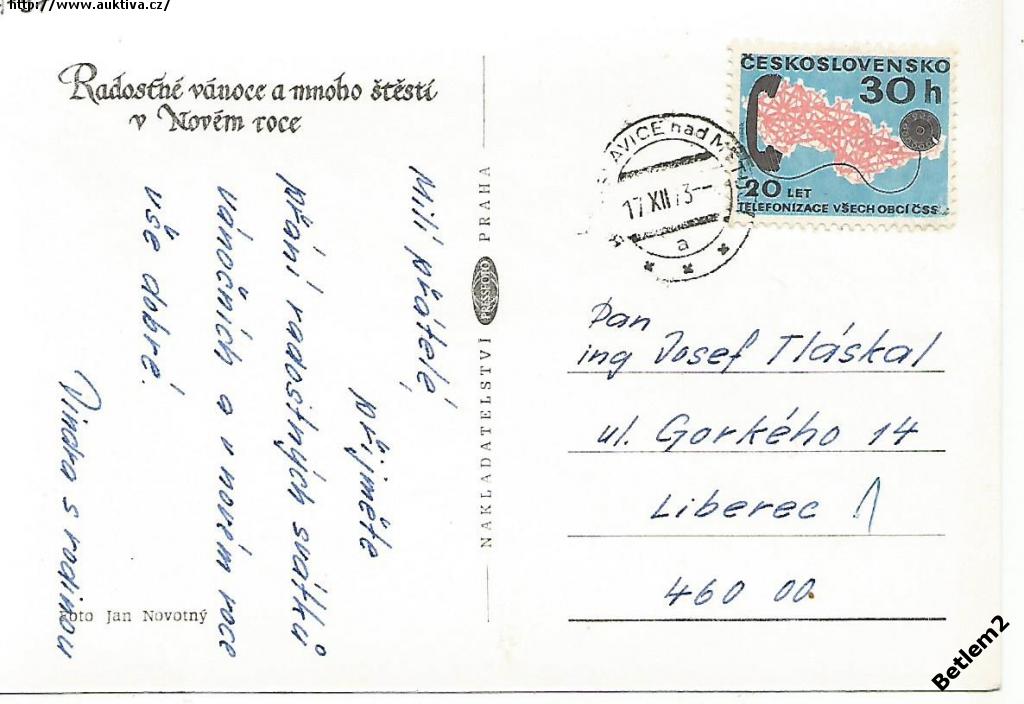 http://www.auktiva.cz/
Radostné vánoce a mnoho štěstí
v Novém roce
Milí přátelé,
přijměte
přání radostných svátků
vánočních a v novém roce
vše dobré.
Jindra s rodinou
Foto Jan Novotný
NAKLADATELSTVÍ PRESSFOTO PRAHA
AVICE nad MET
17 XII 73
a
ČESKOSLOVENSKO
30 h
20 LET
TELEFONIZACE VŠECH OBCÍ ČSS
Pan
ing Josef Tláskal
ul. Gorkého 14
Liberec 1
460 00
Betlem2